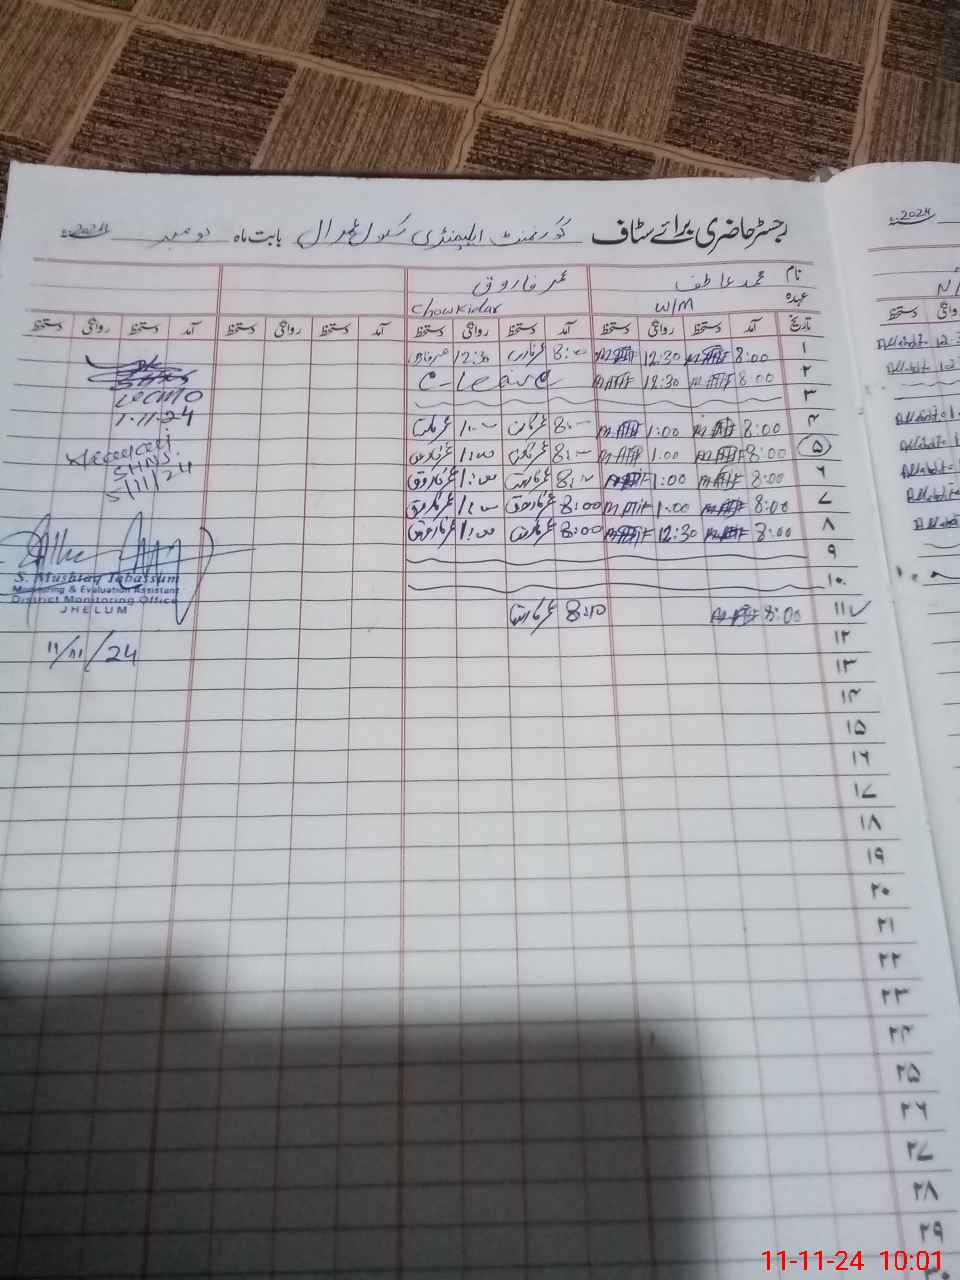 رجسٹر حاضری برائے سٹاف گورنمنٹ ایلیمنٹری سکول بابت ماہ نومبر 2024ء
نام محمد عاطف عمر فاروق
عہدہ W/M Chowkidar
تاریخ آمد دستخط روانگی دستخط آمد دستخط روانگی دستخط آمد دستخط روانگی دستخط آمد دستخط روانگی دستخط
۱ 8:00 M.Atif 12:30 M.Atif 8:00 12:30
۲ 8:00 M.Atif 12:30 M.Atif C-Leave
۳
۴ 8:00 M.Atif 1:00 M.Atif 8:00 1:00
۵ 8:00 M.Atif 1:00 M.Atif 8:00 1:00
۶ 8:00 M.Atif 1:00 M.Atif 8:00 1:00 عمر فاروق
۷ 8:00 M.Atif 1:00 M.Atif 8:00 عمر فاروق 1:00 عمر فاروق
۸ 8:00 M.Atif 12:30 M.Atif 8:00 عمر فاروق 1:00 عمر فاروق
۹
۱۰
۱۱ 8:00 M.Atif 8:10
۱۲
۱۳
۱۴
۱۵
۱۶
۱۷
۱۸
۱۹
۲۰
۲۱
۲۲
۲۳
۲۴
۲۵
۲۶
۲۷
۲۸
۲۹
۳۰
1.11.24
SHNS.
5/11/24
S. Mushtaq Tabassum
Monitoring & Evaluation Assistant
District Monitoring Office
JHELUM
11/11/24
2024ء
11-11-24 10:01